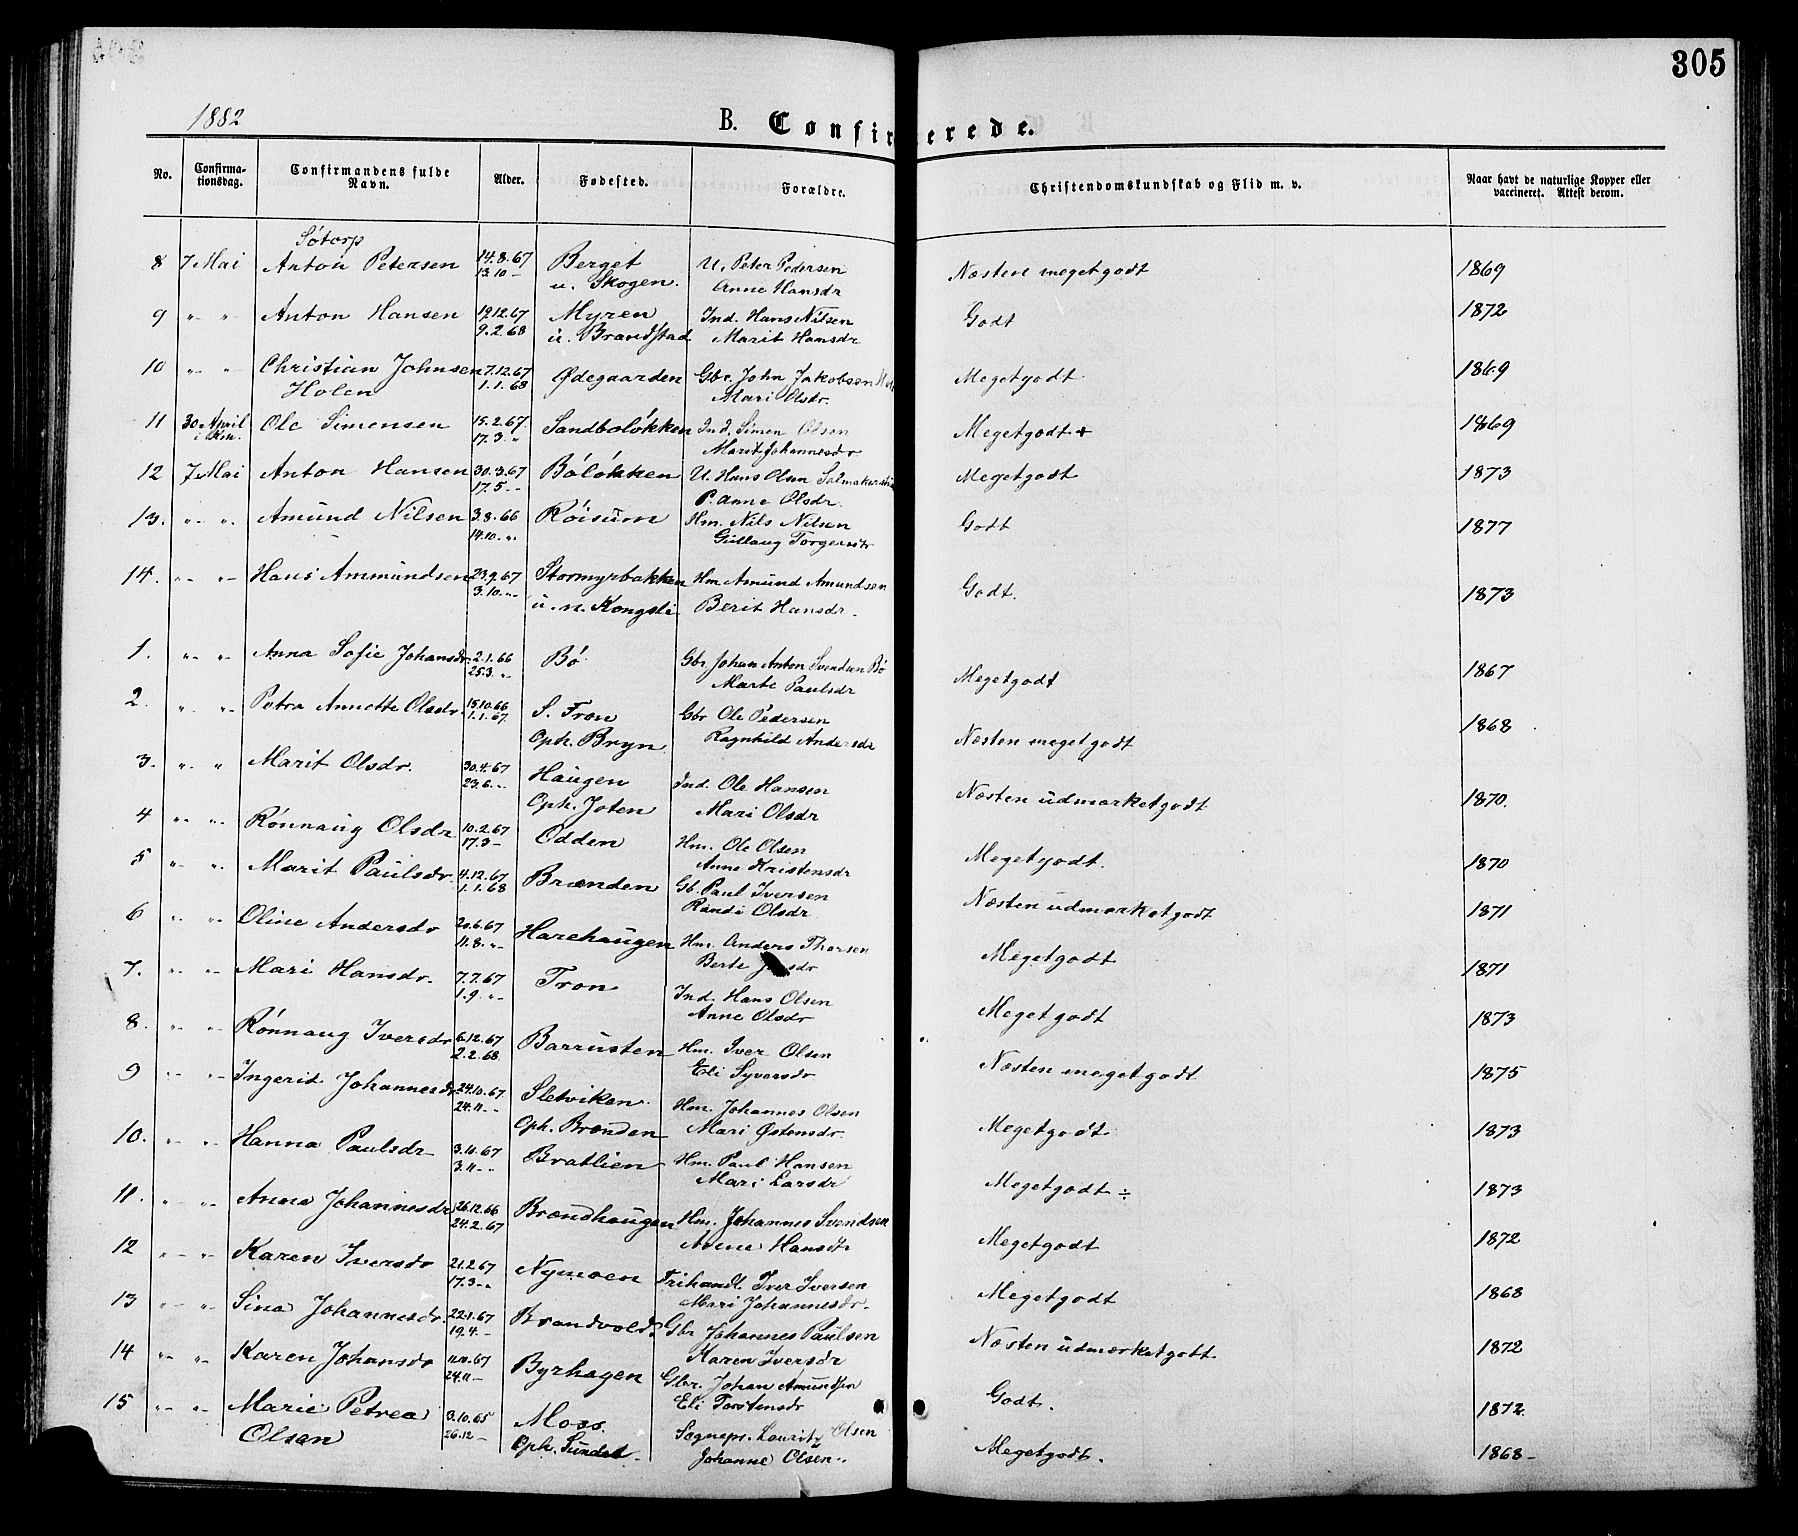 305
1882
B. Confirmerede.
No. Confirmationsdag. Confirmandens fulde Navn. Alder. Fødested. Forældre. Christendomskundskab og Flid m. v. Naar havt de naturlige Kopper eller vaccineret. Attest derom.
Sötorp
8 7 Mai Anton Petersen 14.8.67 Berget U. Peter Pedersen Næsten megetgodt 1869
13.10 — u. Skogen. Anne Hansdr
9 " " Anton Hansen 19.12.67 Myren Ind. Hans Nilsen Godt 1872
9.2.68 u. Brandstad Marit Hansdr
10 " " Christian Johnsen 7.12.67 Ødegaarden Gbr. John Jakobsen Megetgodt 1869
Holen 1.1.68 Mari Olsdr.
11 30 April Ole Simensen 15.2.67 Sandbolökken Ind. Simen Olsen Megetgodt + 1869
17.3. " Marit Johannesdr
12 7 Mai Anton Hansen 30.3.67 Bölökken U. Hans Olsen Megetgodt 1873
17.5 — P. Anne Olsdr.
13. " " Amund Nilsen 3.8.66 Röisum Hm. Nils Nilsen Godt 1877
14.10. " Gullaug Torgersdr
14. " " Hans Ammundsen 23.9.67 Stormyrbakken Hm Amund Amundsen Godt. 1873
3.10. " u. n. Kongsli Berit Hansdr.
1. " " Anna Sofie Johansdr 2.1.66 Bö Gbr. Johan Anton Svendsen Bö Megetgodt 1867
25.3. " Marte Paulsdr
2. " " Petra Annette Olsdr. 15.10.66 S. Fron Gbr Ole Pedersen Næsten megetgodt 1868
1.1.67. Oph. Bryn Ragnhild Andersdr
3. " " Marit Olsdr. 30.4.67 Haugen Ind. Ole Hansen Næsten udmærketgodt 1870.
23.6. " Oph. Joten Mari Olsdr
4 " " Rönnaug Olsdr 10.2.67 Odden Hm. Ole Olsen Megetgodt. 1870
17.3 — Anne Kristensdr
5 " " Marit Paulsdr. 4.12.67 Brænden Gb. Paul Iversen Næsten udmærketgodt 1871
1.1.68 Randi Olsdr
6 " " Oline Andersdr 20.6.67 Harehaugen Hm. Anders Thorsen Megetgodt 1871
11.8. " Berte
7. " " Mari Hansdr. 7.7.67 Tron Ind. Hans Olsen Megetgodt 1873
1.9. " Anne Olsdr
8. " " Rönnaug Iversdr 6.12.67 Barrusten Hm. Iver Olsen Næsten megetgodt 1875
2.2.68 Eli Syversdr
9 " " Ingerid Johannesdr. 24.10.67 Sletviken Hm. Johannes Olsen Megetgodt 1873
24.11 — Oph. Brænden Mari Østensdr.
10. " " Hanna Paulsdr 3.10.67 Bratlien Hm. Paul Hansen Megetgodt ÷ 1873
3.11 — Mari Larsdr
11. " " Anna Johannesdr 26.12.66 Brændhaugen Hm. Johannes Svendsen Megetgodt 1872
24.2.67 Anne Hansdr
12 " " Karen Iversdr 21.2.67 Nymoen Frihandl. Iver Iversen Megetgodt 1868
17.3 — Mari Johannesdr.
13 " " Sina Johannesdr. 22.1.67 Brandvold Gbr Johannes Paulsen Næsten udmærketgodt 1872
19.4. — Karen Iversdr
14 " " Karen Johansdr Byrhagen Gbr. Johan Amundsen Godt. 1872.
24.11 — Eli Torstensdr
15 " " Marie Petrea 3.10.65 Moss. Sognepr. Lauritz Olsen Megetgodt. 1868 —
Olsen 26.12 — Oph. Sundet Johanne Olsen.